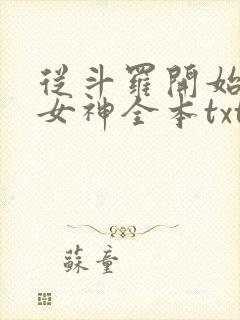 從斗羅開始
女神全本txt
蘇童